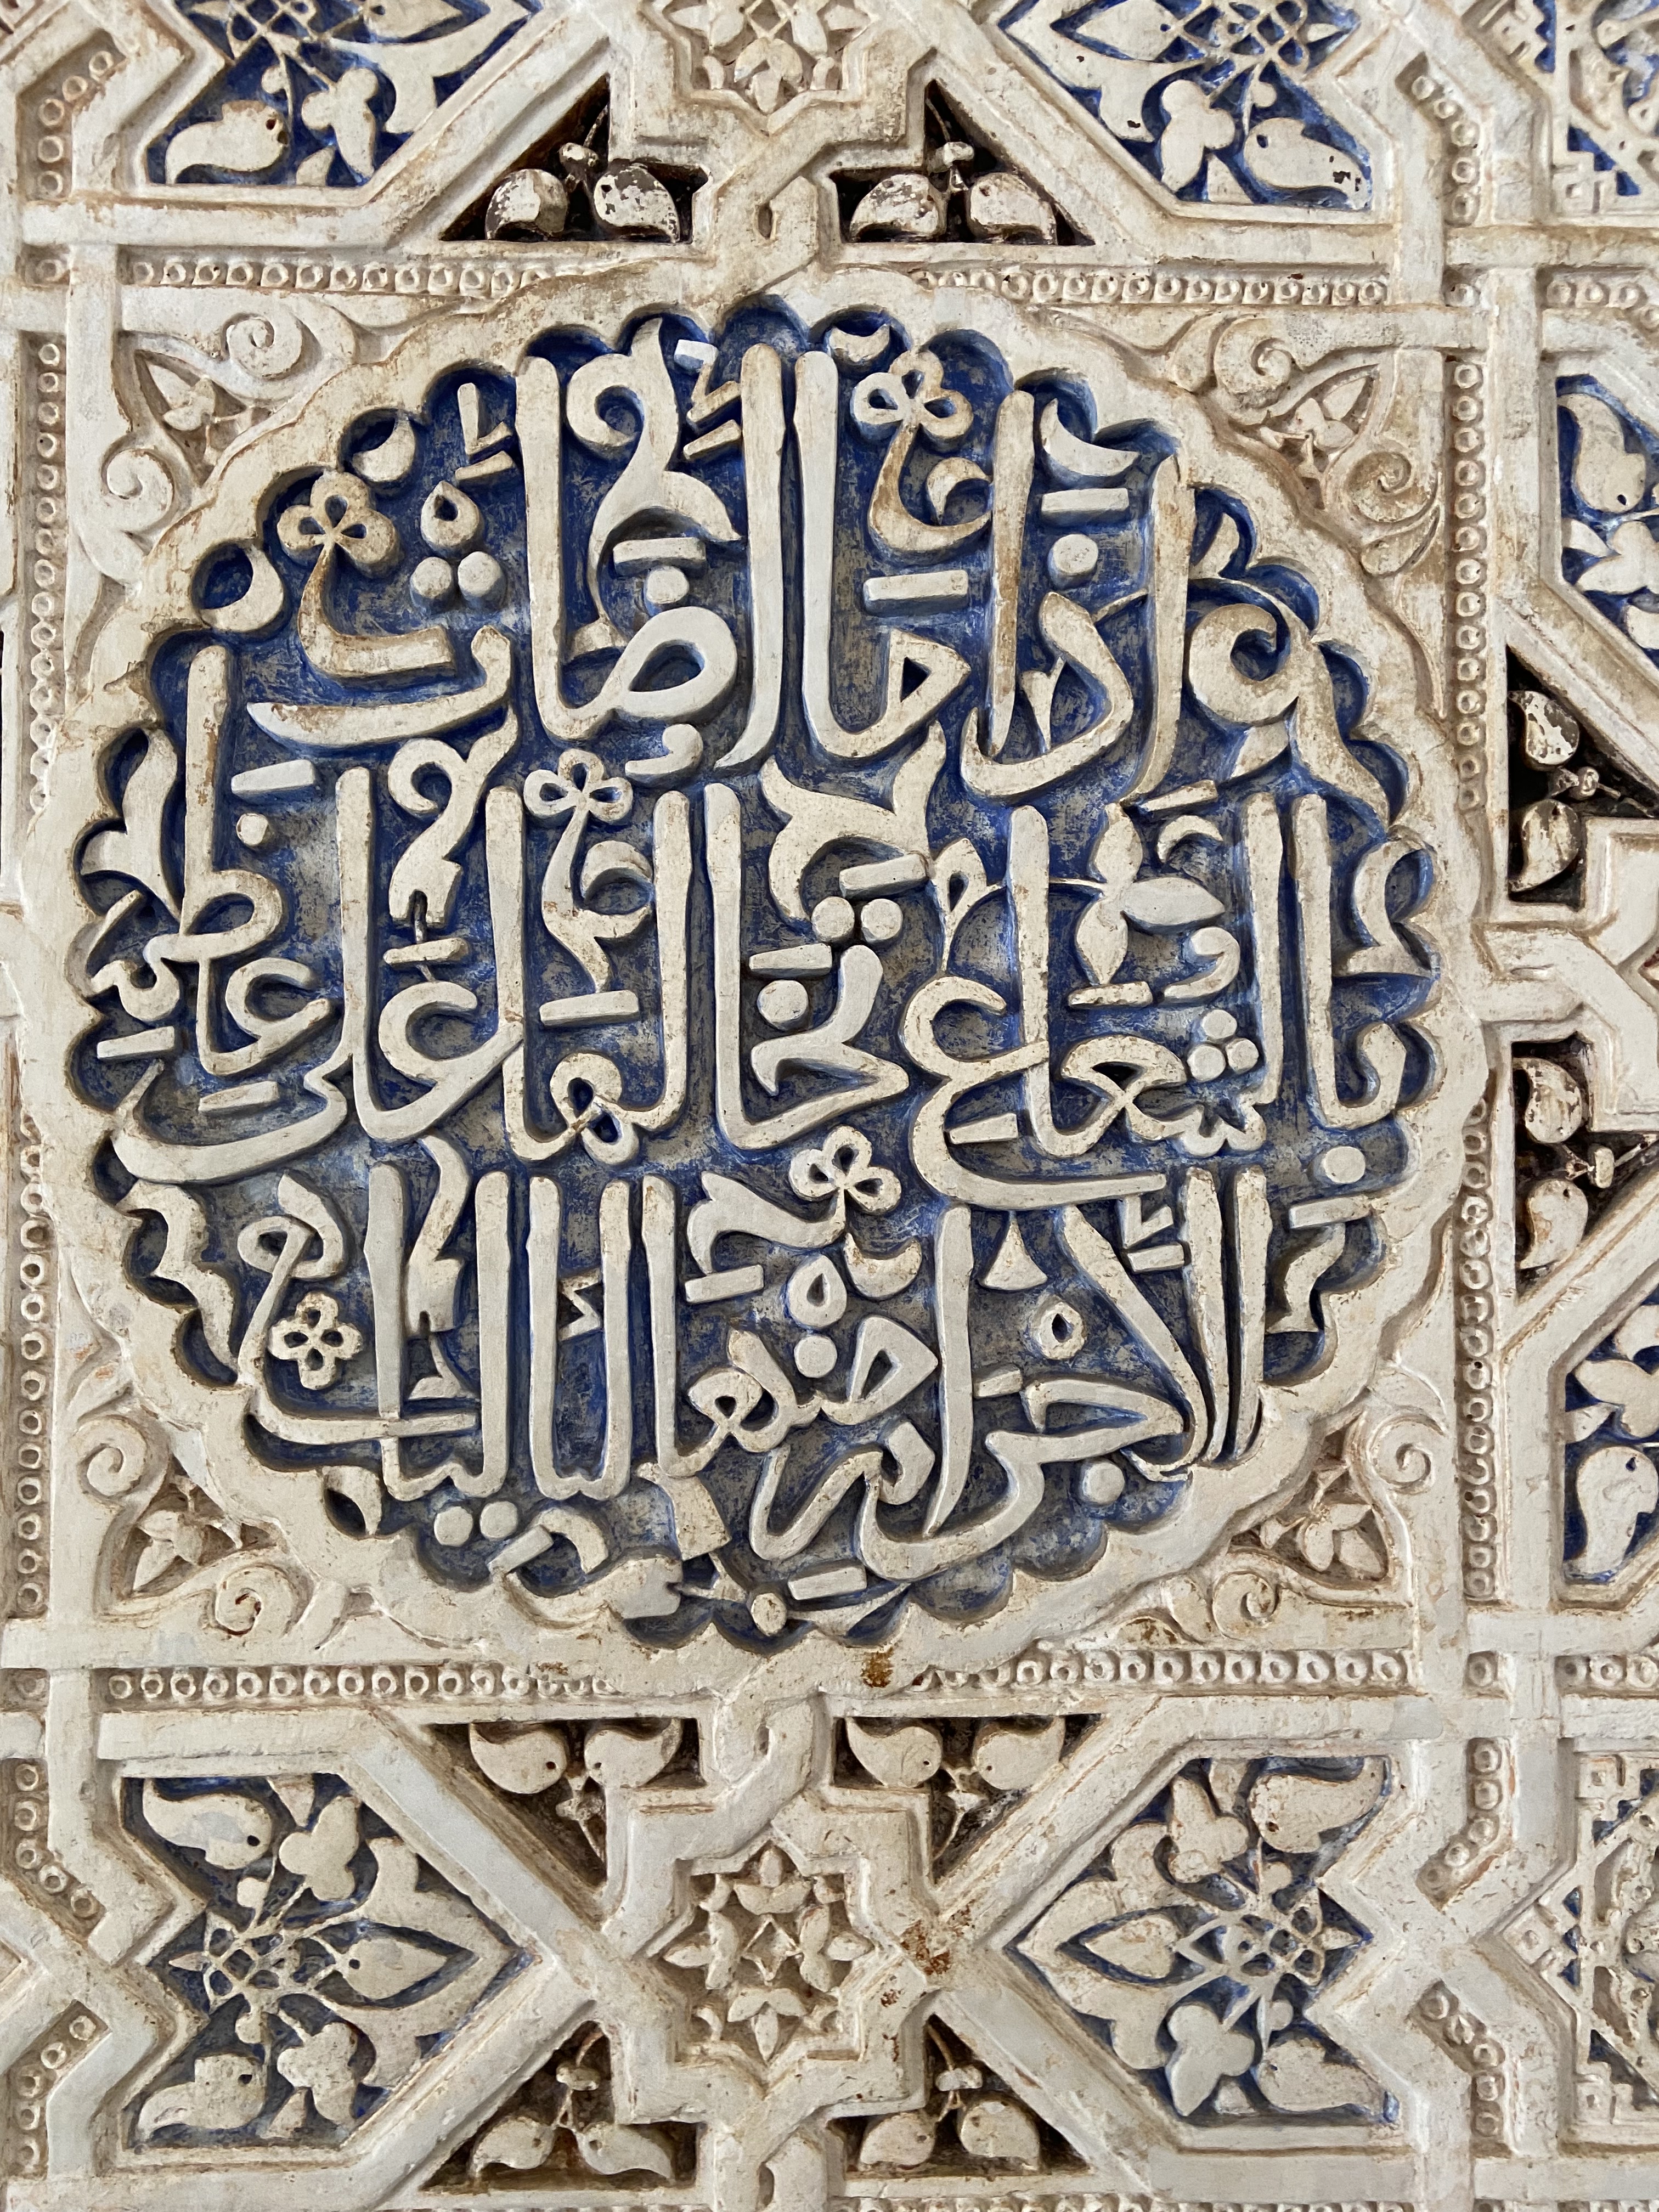 إذا ما أضاءت
بالشعاع تخالها على عظم
الأجرام لآليا